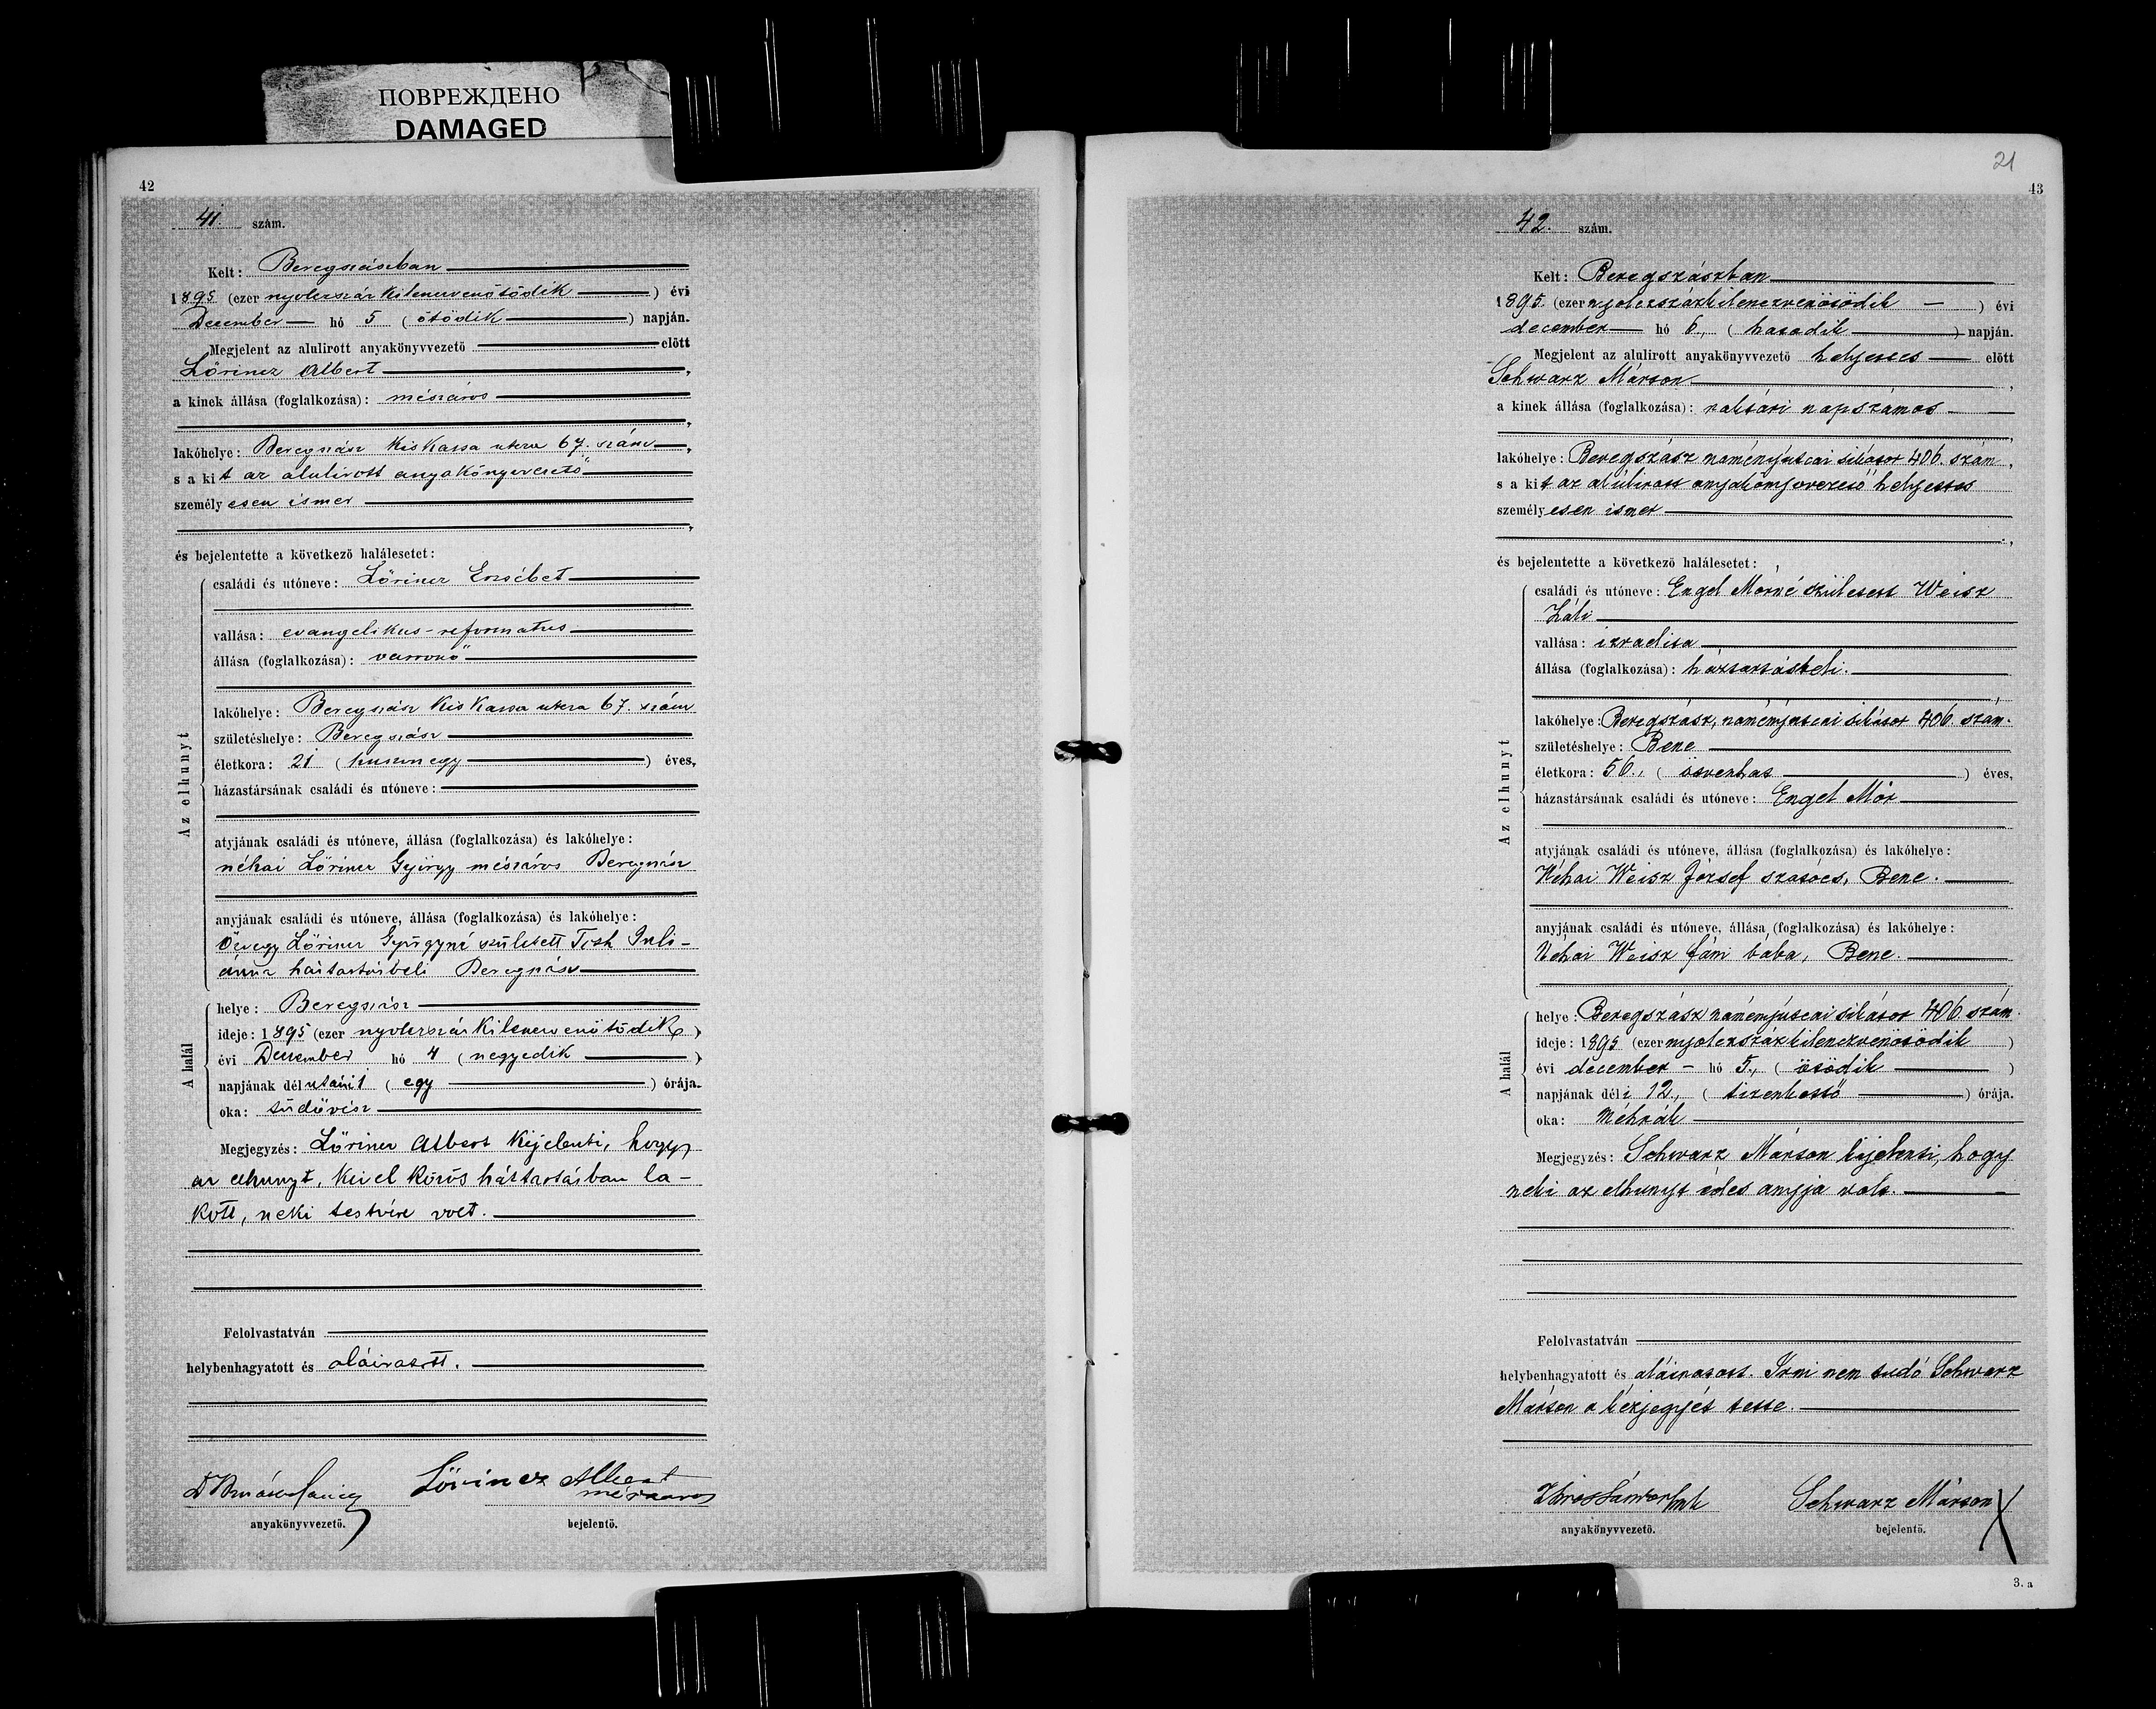 ПОВРЕЖДЕНО
DAMAGED
42
41. szám.
Kelt: Beregszászban
1895 (ezer nyolczszáz kilenczvenötödik) évi
December hó 5 (ötödik) napján.
Megjelent az alulirott anyakönyvvezető előtt
Lőrincz Albert,
a kinek állása (foglalkozása): mészáros
,
lakóhelye: Beregszász Kis Kassa utcza 67. szám,
s a kit az alulirott anyakönyvvezető
személyesen ismer
,
és bejelentette a következő halálesetet:
Az elhunyt
családi és utóneve: Lőrincz Erzsébet
vallása: evangelikus-reformatus
állása (foglalkozása): varronő
lakóhelye: Beregszász Kis Kassa utcza 67. szám
születéshelye: Beregszász
életkora: 21 (huszonegy) éves,
házastársának családi és utóneve:
atyjának családi és utóneve, állása (foglalkozása) és lakóhelye:
néhai Lőrincz György mészáros Beregszász
anyjának családi és utóneve, állása (foglalkozása) és lakóhelye:
Özvegy Lőrincz Györgyné született Tóth Juli-
ánna háztartásbeli Beregszász
A halál
helye: Beregszász
ideje: 1895 (ezer nyolczszáz kilenczvenötödik)
évi December hó 4 (negyedik)
napjának délutáni 1 (egy) órája.
oka: tüdővész
Megjegyzés: Lőrincz Albert kijelenti, hogy
az elhunyt, kivel közös háztartásban la-
kott, neki testvére volt.
Felolvastatván
helybenhagyatott és aláiratott.
Lőrincz Albert
mészáros
anyakönyvvezető. bejelentő.
21
43
42. szám.
Kelt: Beregszászban
1895. (ezer nyolczszázkilenczvenötödik) évi
december hó 6., (hatodik) napján.
Megjelent az alulirott anyakönyvvezető helyettes előtt
Schwarz Márton,
a kinek állása (foglalkozása): raktári napszámos
,
lakóhelye: Beregszász naményiutcai sikátor 406. szám,
s a kit az alúlirott anyakönyvvezető helyettes
személyesen ismer
,
és bejelentette a következő halálesetet:
Az elhunyt
családi és utóneve: Engel Mórné született Weisz
Záli
vallása: izraelita
állása (foglalkozása): háztartásbeli.
lakóhelye: Beregszász, naményiutcai sikátor 406. szám.
születéshelye: Bene
életkora: 56., (ötvenhat) éves,
házastársának családi és utóneve: Engel Mór
atyjának családi és utóneve, állása (foglalkozása) és lakóhelye:
Néhai Weisz József szatócs, Bene.
anyjának családi és utóneve, állása (foglalkozása) és lakóhelye:
Néhai Weisz Fáni bába, Bene.
A halál
helye: Beregszász naményiutcai sikátor 406. szám.
ideje: 1895 (ezer nyolczszázkilenczvenötödik)
évi december hó 5., (ötödik)
napjának déli 12., (tizenkettő) órája.
oka: Méhrák
Megjegyzés: Schwarz Márton kijelenti, hogy
neki az elhunyt édes anyja volt.
Felolvastatván
helybenhagyatott és aláiratott. Irni nem tudó Schwarz
Márton a kézjegyét tette.
Schwarz Márton X
anyakönyvvezető. bejelentő.
3. a